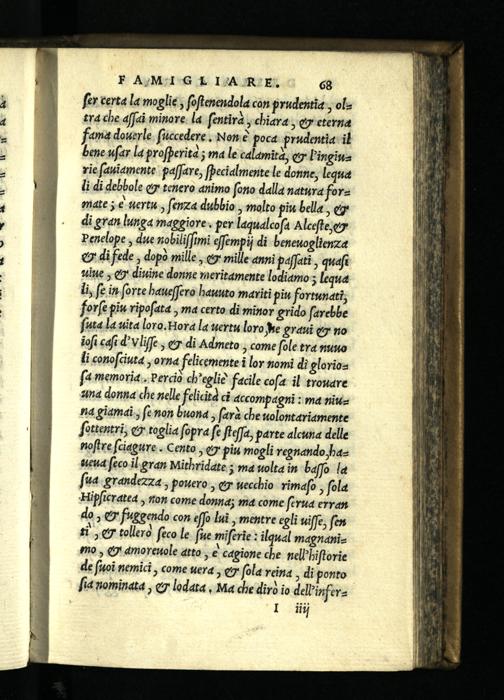 FAMIGLIARE. 68
ſer certa la moglie, ſoſtenendola con prudentia, ol=
tra che aſſai minore la ſentirà, chiara, & eterna
fama douerle ſuccedere. Non è poca prudentia il
bene uſar la proſperità; ma le calamità, & l'ingiu=
rie ſauiamente paſſare, ſpecialmente le donne, lequa
li di debbole & tenero animo ſono dalla natura for=
mate; è uertu, ſenza dubbio, molto piu bella, &
di gran lunga maggiore. per laqualcoſa Alceſte, &
Penelope, due nobiliſſimi eſſempij di beneuoglienza
& di fede, dopò mille, & mille anni paſſati, quaſi
uiue, & diuine donne meritamente lodiamo; lequa
li, ſe in ſorte haueſſero hauuto mariti piu fortunati,
forſe piu ripoſata, ma certo di minor grido ſarebbe
ſuta la uita loro. Hora la uertu loro, ne graui & no
ioſi caſi d'Vliſſe, & di Admeto, come ſole tra nuuo
li conoſciuta, orna felicemente i lor nomi di glorio=
ſa memoria. Perciò ch'egliè facile coſa il trouare
una donna che nelle felicità ci accompagni: ma niu=
na giamai, ſe non buona, ſarà che uolontariamente
ſottentri, & toglia ſopra ſe ſteſſa, parte alcuna delle
noſtre ſciagure. Cento, & piu mogli regnando, ha=
ueua ſeco il gran Mithridate; ma uolta in baſſo la
ſua grandezza, pouero, & uecchio rimaſo, ſola
Hipſicratea, non come donna; ma come ſerua erran
do, & fuggendo con eſſo lui, mentre egli uiſſe, ſen
tì, & tollerò ſeco le ſue miſerie: ilqual magnani=
mo, & amoreuole atto, è cagione che nell'hiſtorie
de ſuoi nemici, come uera, & ſola reina, di ponto
ſia nominata, & lodata. Ma che dirò io dell'infer=
I iiij